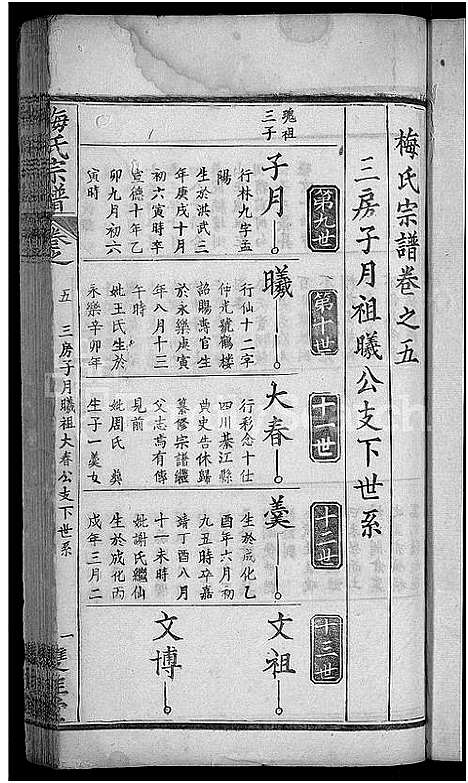 梅氏宗譜卷之五
三房子月祖曦公支下世系
第九世
第十世
十一世
十二世
十三世
瑰祖
三子
子月
行林九字孟
陽
生於洪武三
年庚戌十月
初六寅時卒
宣德十年乙
卯九月初六
寅時
曦
行仙十二字
仲光號鶴樓
詔賜壽官生
於永樂庚寅
年八月十三
午時
妣王氏生於
永樂辛卯年
大春
行彩念十仕
四川綦江縣
典史告休歸
纂修宗譜繼
父志焉有傳
見前
妣周氏 㷼
生子一羹女
羹
生於成化乙
酉年六月初
九五時卒嘉
靖丁酉八月
十一未時
妣謝氏繼仙
生於成化丙
戌年三月二
文祖
文博
梅氏宗譜
卷之
五 三房子月曦祖大春公支下世系
一